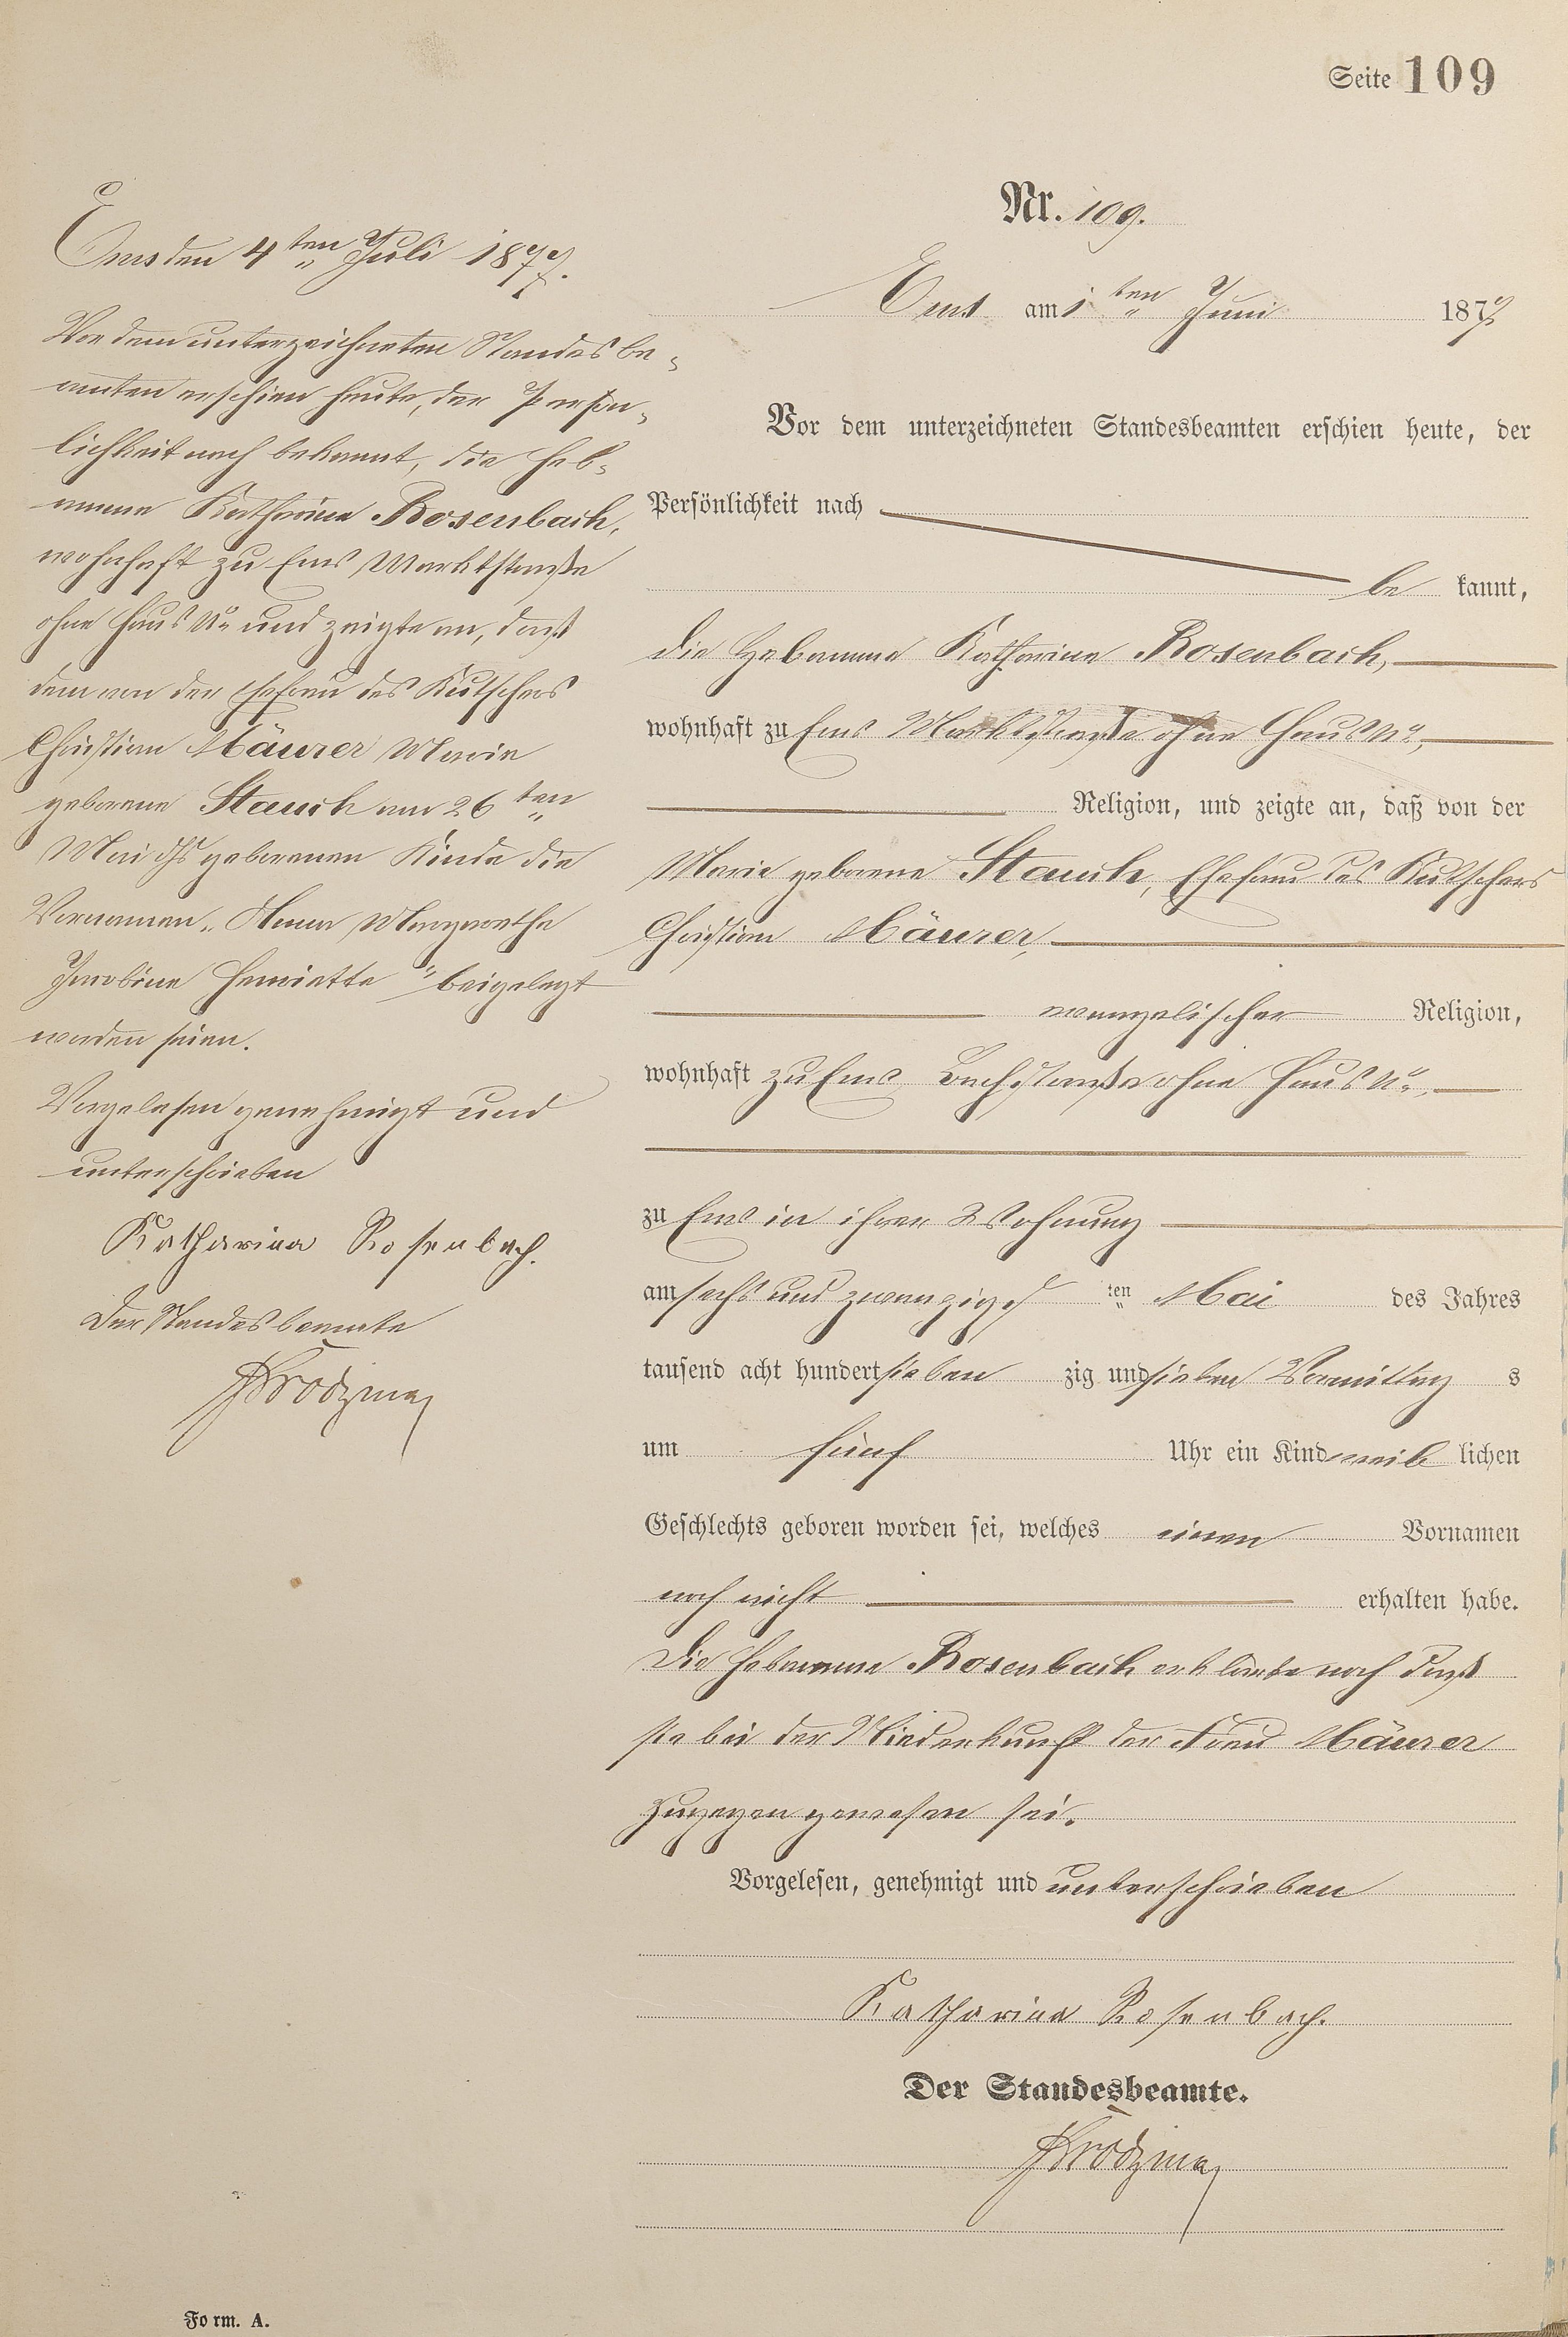 Seite 109
Nr. 109.
Ems am 1ten Juni 1877
Vor dem unterzeichneten Standesbeamten erschien heute, der
Persönlichkeit nach
be kannt,
die Hebamme Katharina Rosenbach,
wohnhaft zu Ems Marktstraße ohne Haus No,
Religion, und zeigte an, daß von der
Marie geborene Stauch, Ehefrau des Kutschers
Christian Mäurer,
evangelischer Religion,
wohnhaft zu Ems, Bachstraße ohne Haus No,
zu Ems in ihrer Wohnung
am sechs und zwanzigsten Mai des Jahres
tausend acht hundert sieben zig und sieben Vormittag s
um fünf Uhr ein Kind weib lichen
Geschlechts geboren worden sei, welches einen Vornamen
noch nicht erhalten habe.
Die Hebamme Rosenbach erklärte noch daß
sie bei der Niederkunft der Frau Mäurer
zugegen gewesen sei.
Vorgelesen, genehmigt und unterschrieben
Katharina Rosenbach.
Der Standesbeamte.
Ems den 4ten Juli 1877.
Vor dem unterzeichneten Standesbe-
amten erschien heute, der Persön-
lichkeit nach bekannt, die Heb-
amme Katharina Rosenbach,
wohnhaft zu Ems Marktstraße
ohne Haus No und zeigte an, daß
dem von der Ehefrau des Kutschers
Christian Mäurer Marie
geborene Stauch am 26ten
Mai ds geborenen Kinde die
Vornamen „Anna Margarethe
Jacobine Henriette" beigelegt
worden seien.
Vorgelesen genehmigt und
unterschrieben
Katharina Rosenbach.
Der Standesbeamte
Form. A.